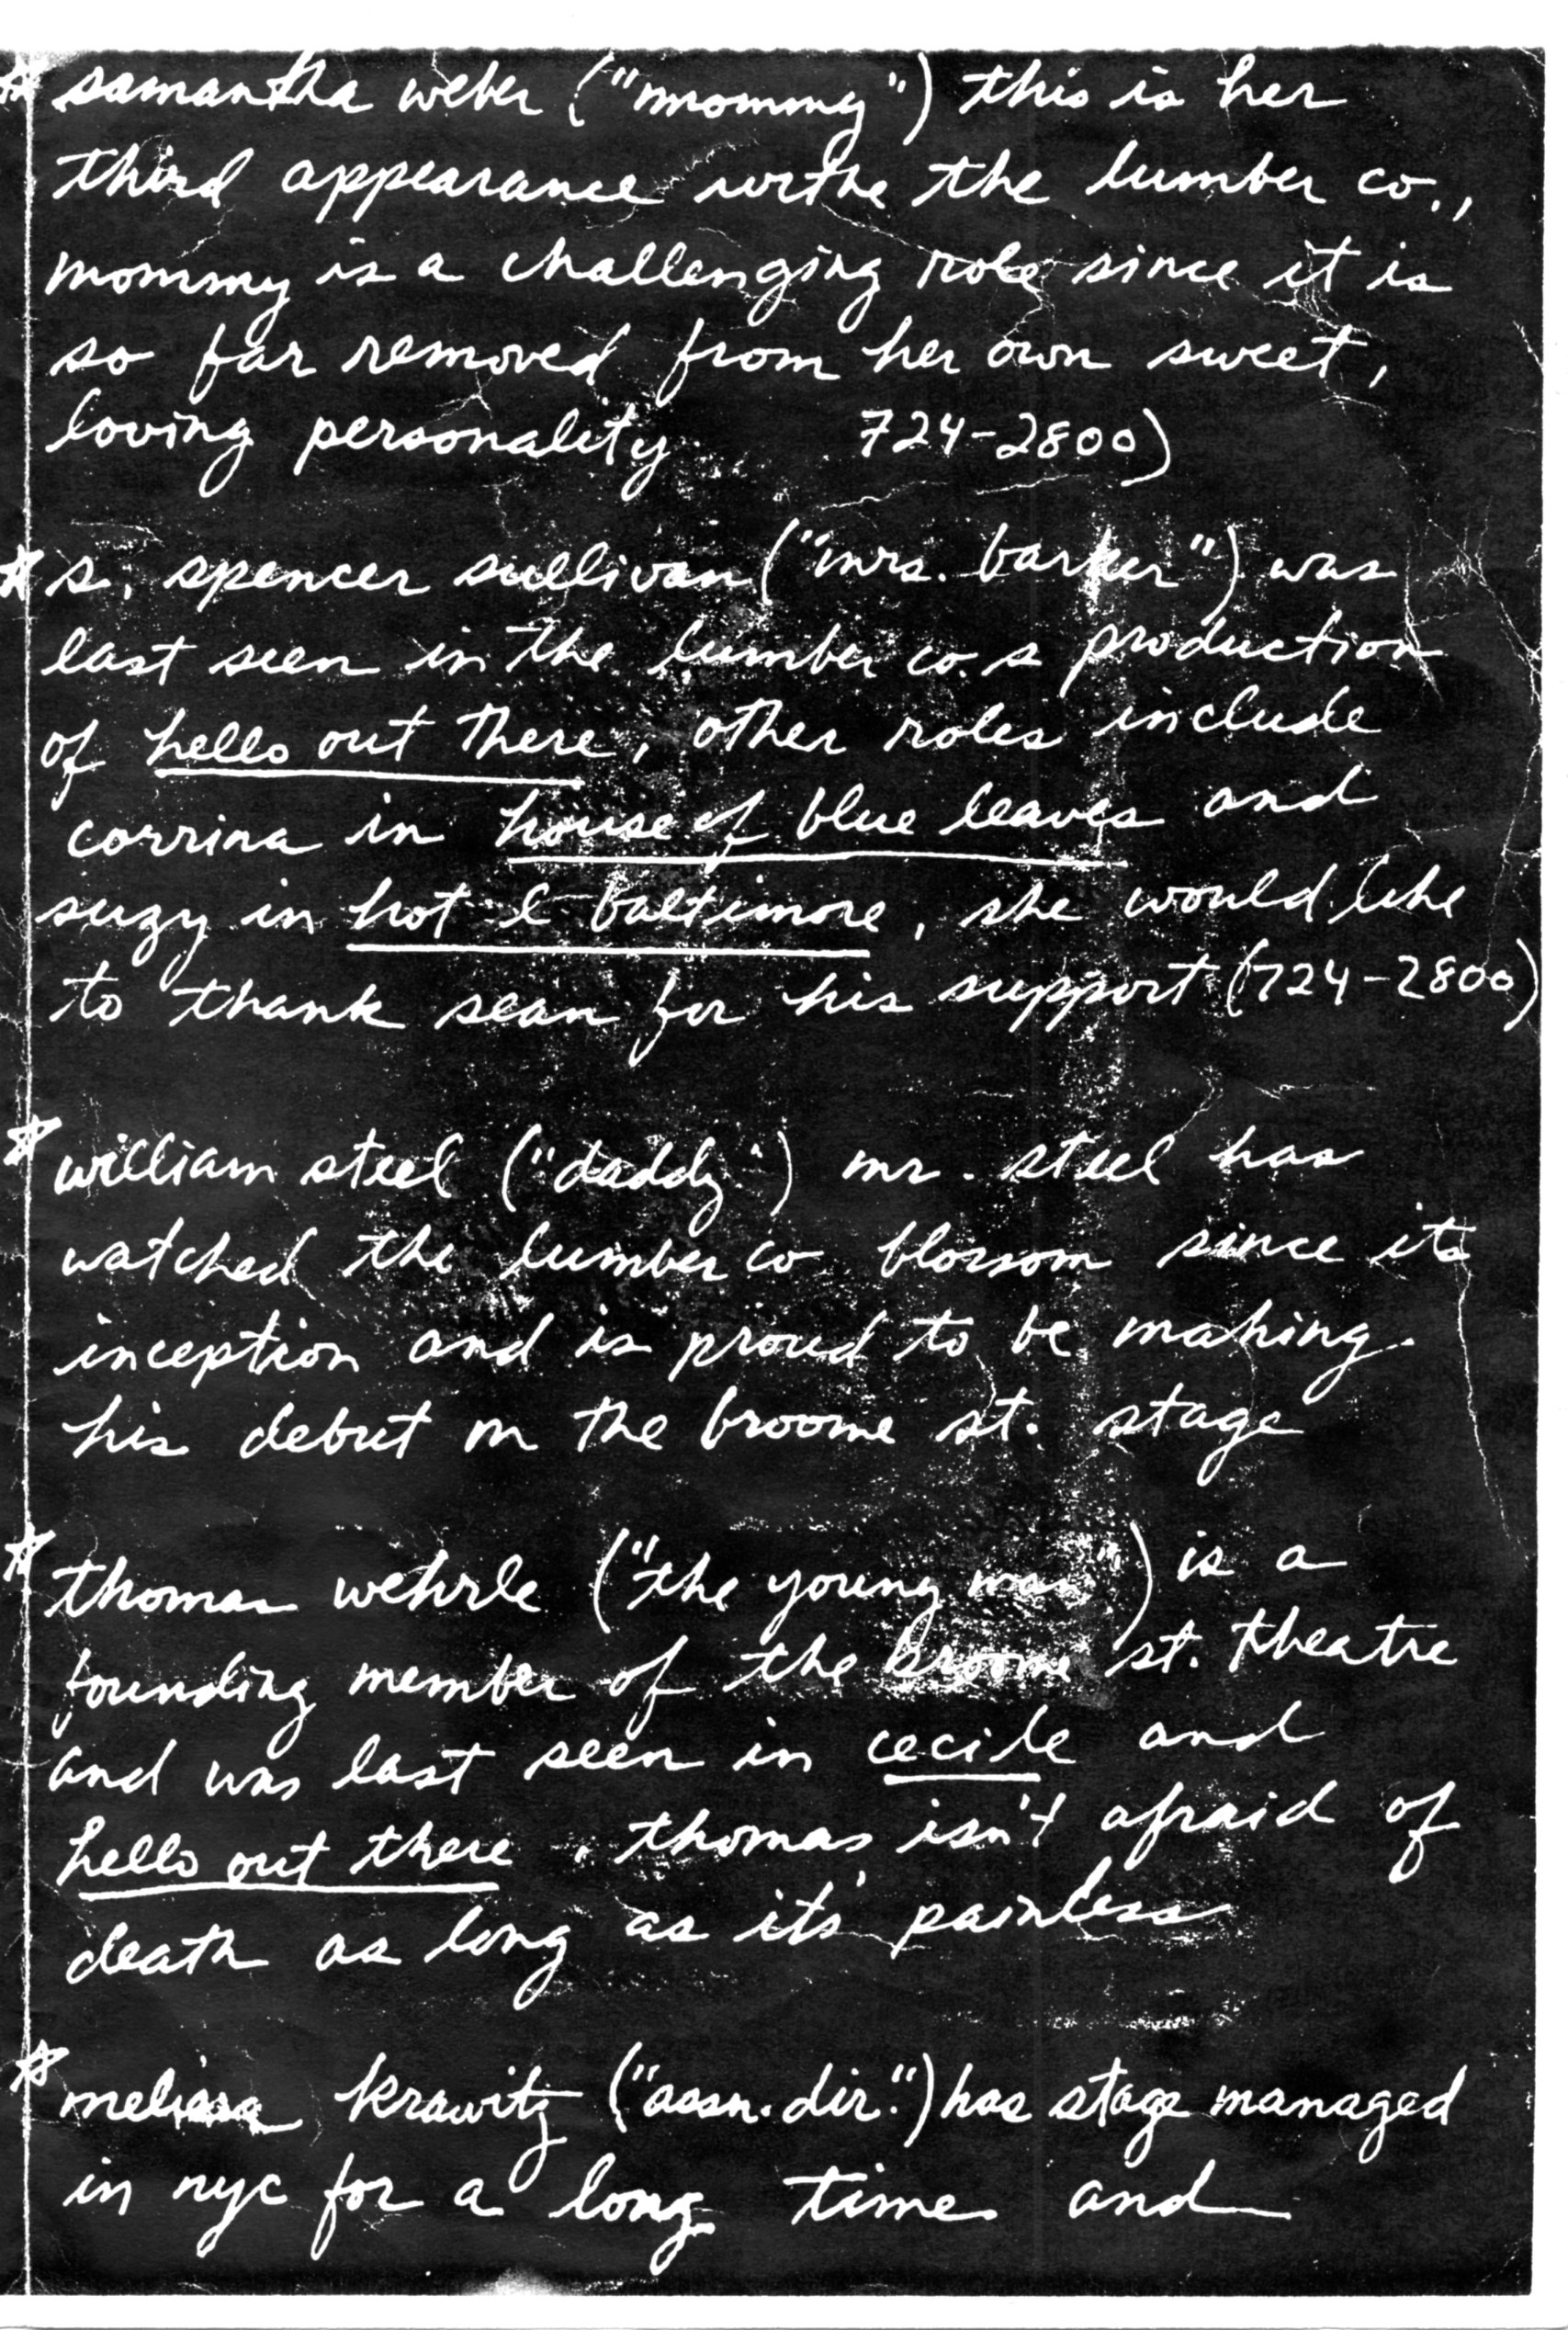 ☆ samantha weber ("mommy") this is her
third appearance withe the lumber co.,
mommy is a challenging role since it is
so far removed from her own sweet,
loving personality 724-2800)
☆ s. spencer sullivan ("mrs. barker") was
last seen in the lumber co.s production
of hello out there, other roles include
corrina in house of blue leaves and
suzy in hot l baltimore, she would like
to thank sean for his support (724-2800)
☆ william steel ("daddy") mr. steel has
watched the lumber co blossom since its
inception and is proud to be making
his debut on the broome st. stage
☆ thomas wehrle ("the young man") is a
founding member of the broome st. theatre
and was last seen in cecile and
hello out there, thomas isn't afraid of
death as long as it's painless
☆ melissa krawitz ("assn. dir.") has stage managed
in nyc for a long time and